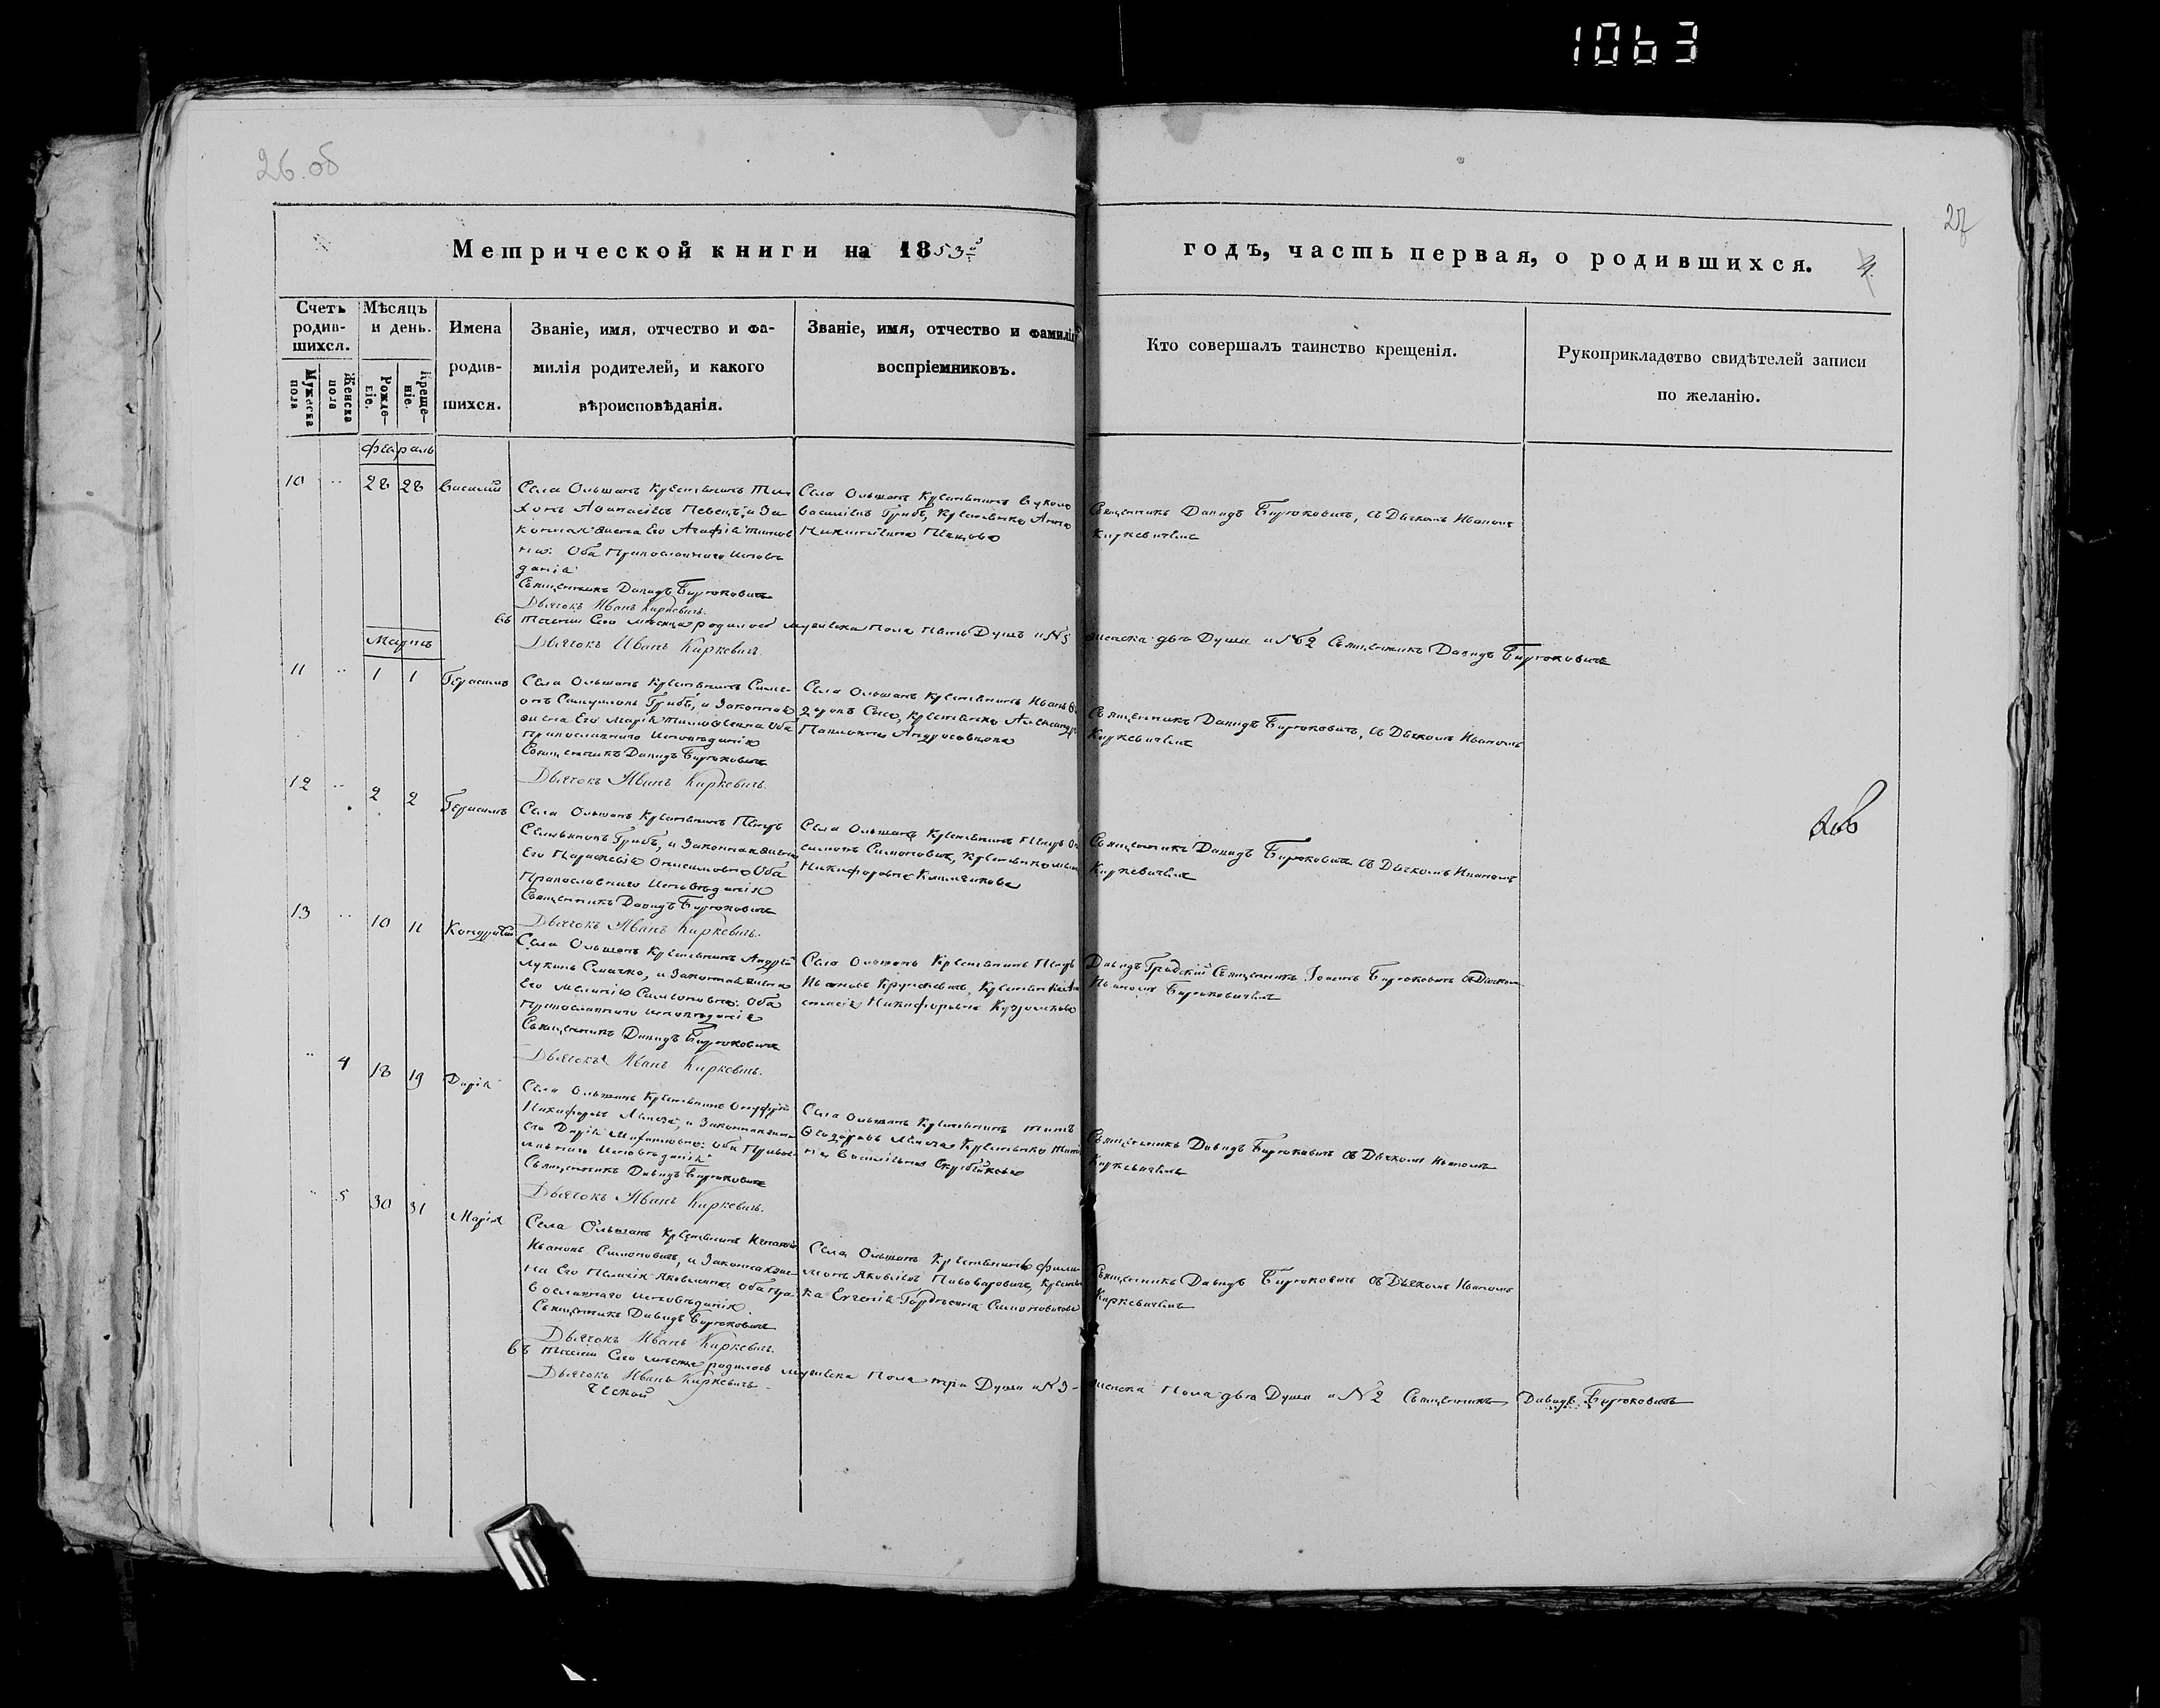 1063
26 об
27
Метрической книги на 1853й
годъ, часть первая, о родившихся.
4.
Счетъ родив-
шихся.
Мужеска пола
Женска пола
Мѣсяцъ
и день.
Рожде-
ніе.
Креще-
ніе.
Имена
родив-
шихся.
Званіе, имя, отчество и фа-
милія родителей, и какого
вѣроисповѣданія.
Званіе, имя, отчество и фамилія
воспріемниковъ.
Кто совершалъ таинство крещенія.
Рукоприкладство свидѣтелей записи
по желанію.
10 28 28 Василий
Села Ольшанъ Крестьянинъ
Аѳанасіевъ Певецъ, и За-
конная жена Его Агафія
Оба Православнаго Исповѣ
данія
Священникъ Давидъ Бирюковичь
Дьячокъ Иванъ Киркевичь.
Села Ольшанъ Крестьянинъ
Василіевъ Грибъ, Крестьянка Анна
Никитична Певцова
Священникъ Давидъ Бирюковичь, съ Дьячкомъ Иваномъ
Киркевичемъ
Въ теченіи Сего мѣсяца родилось мужеска Пола Пять Душъ и N 5 женска двѣ Души и N 2 Священникъ Давидъ Бирюковичь
Дьячокъ Иванъ Киркевичь.
Мартъ
11 1 1 Герасимъ
Села Ольшанъ Крестьянинъ Симе-
онъ Самуиловъ Грибъ, и Законная
жена Его Марія Тимоѳеевна Оба
Православнаго Исповѣданія
Священникъ Давидъ Бирюковичь
Дьячокъ Иванъ Киркевичь.
Села Ольшанъ Крестьянинъ Иванъ
Крестьянка Александра
Павловна Андросовцова
Священникъ Давидъ Бирюковичь, съ Дьячкомъ Иваномъ
Киркевичемъ
12 2 2 Герасимъ
Села Ольшанъ Крестьянинъ Петръ
Грибъ, и Законная жена
Его Параскевія Онисимовна Оба
Православнаго Исповѣданія
Священникъ Давидъ Бирюковичь
Дьячокъ Иванъ Киркевичь.
Села Ольшанъ Крестьянинъ Петръ
Симоновичь, Крестьянка
Никифоровна
Священникъ Давидъ Бирюковичь съ Дьячкомъ Иваномъ
Киркевичемъ
13 10 11 Кондратий
Села Ольшанъ Крестьянинъ Андрей
Лукинъ Сначко, и Законная жена
Его Меланія Симеоновна: Оба
Православнаго Исповѣданія
Священникъ Давидъ Бирюковичь
Дьячокъ Иванъ Киркевичь.
Села Ольшанъ Крестьянинъ Петръ
Ивановъ Крестьянка
Никифоровна
Давидъ Градскій Священникъ Іоаннъ Бирюковичь съ Дьячкомъ
Иваномъ Бирюковичемъ
4 18 19 Дарія
Села Ольшанъ Крестьянинъ Онуфрій
Никифоровъ и Законная жена
его Дарія оба Правос-
лавнаго Исповѣданія
Священникъ Давидъ Бирюковичь
Дьячокъ Иванъ Киркевичь.
Села Ольшанъ Крестьянинъ Титъ
Ѳеодоровъ Крестьянка
Василіевна Скрибикова
Священникъ Давидъ Бирюковичь съ Дьячкомъ Иваномъ
Киркевичемъ
5 30 31 Марія
Села Ольшанъ Крестьянинъ Игнатій
Ивановъ Симоновичь, и Законная же-
на Его Пелагія Яковлевна оба Пра-
вославнаго исповѣданія
Священникъ Давидъ Бирюковичь
Дьячокъ Иванъ Киркевичь.
Села Ольшанъ Крестьянинъ Фили-
монъ Яковлевъ Пивоваровичь, Крестьян
ка Евгенія Гордѣевна Симоновичова
Священникъ Давидъ Бирюковичь съ Дьячкомъ Иваномъ
Киркевичемъ
Въ теченіи Сего мѣсяца родилось мужеска Пола три Души и N 3 женска Пола двѣ Души и N 2 Священникъ Давидъ Бирюковичь
Дьячокъ Иванъ Киркевичь